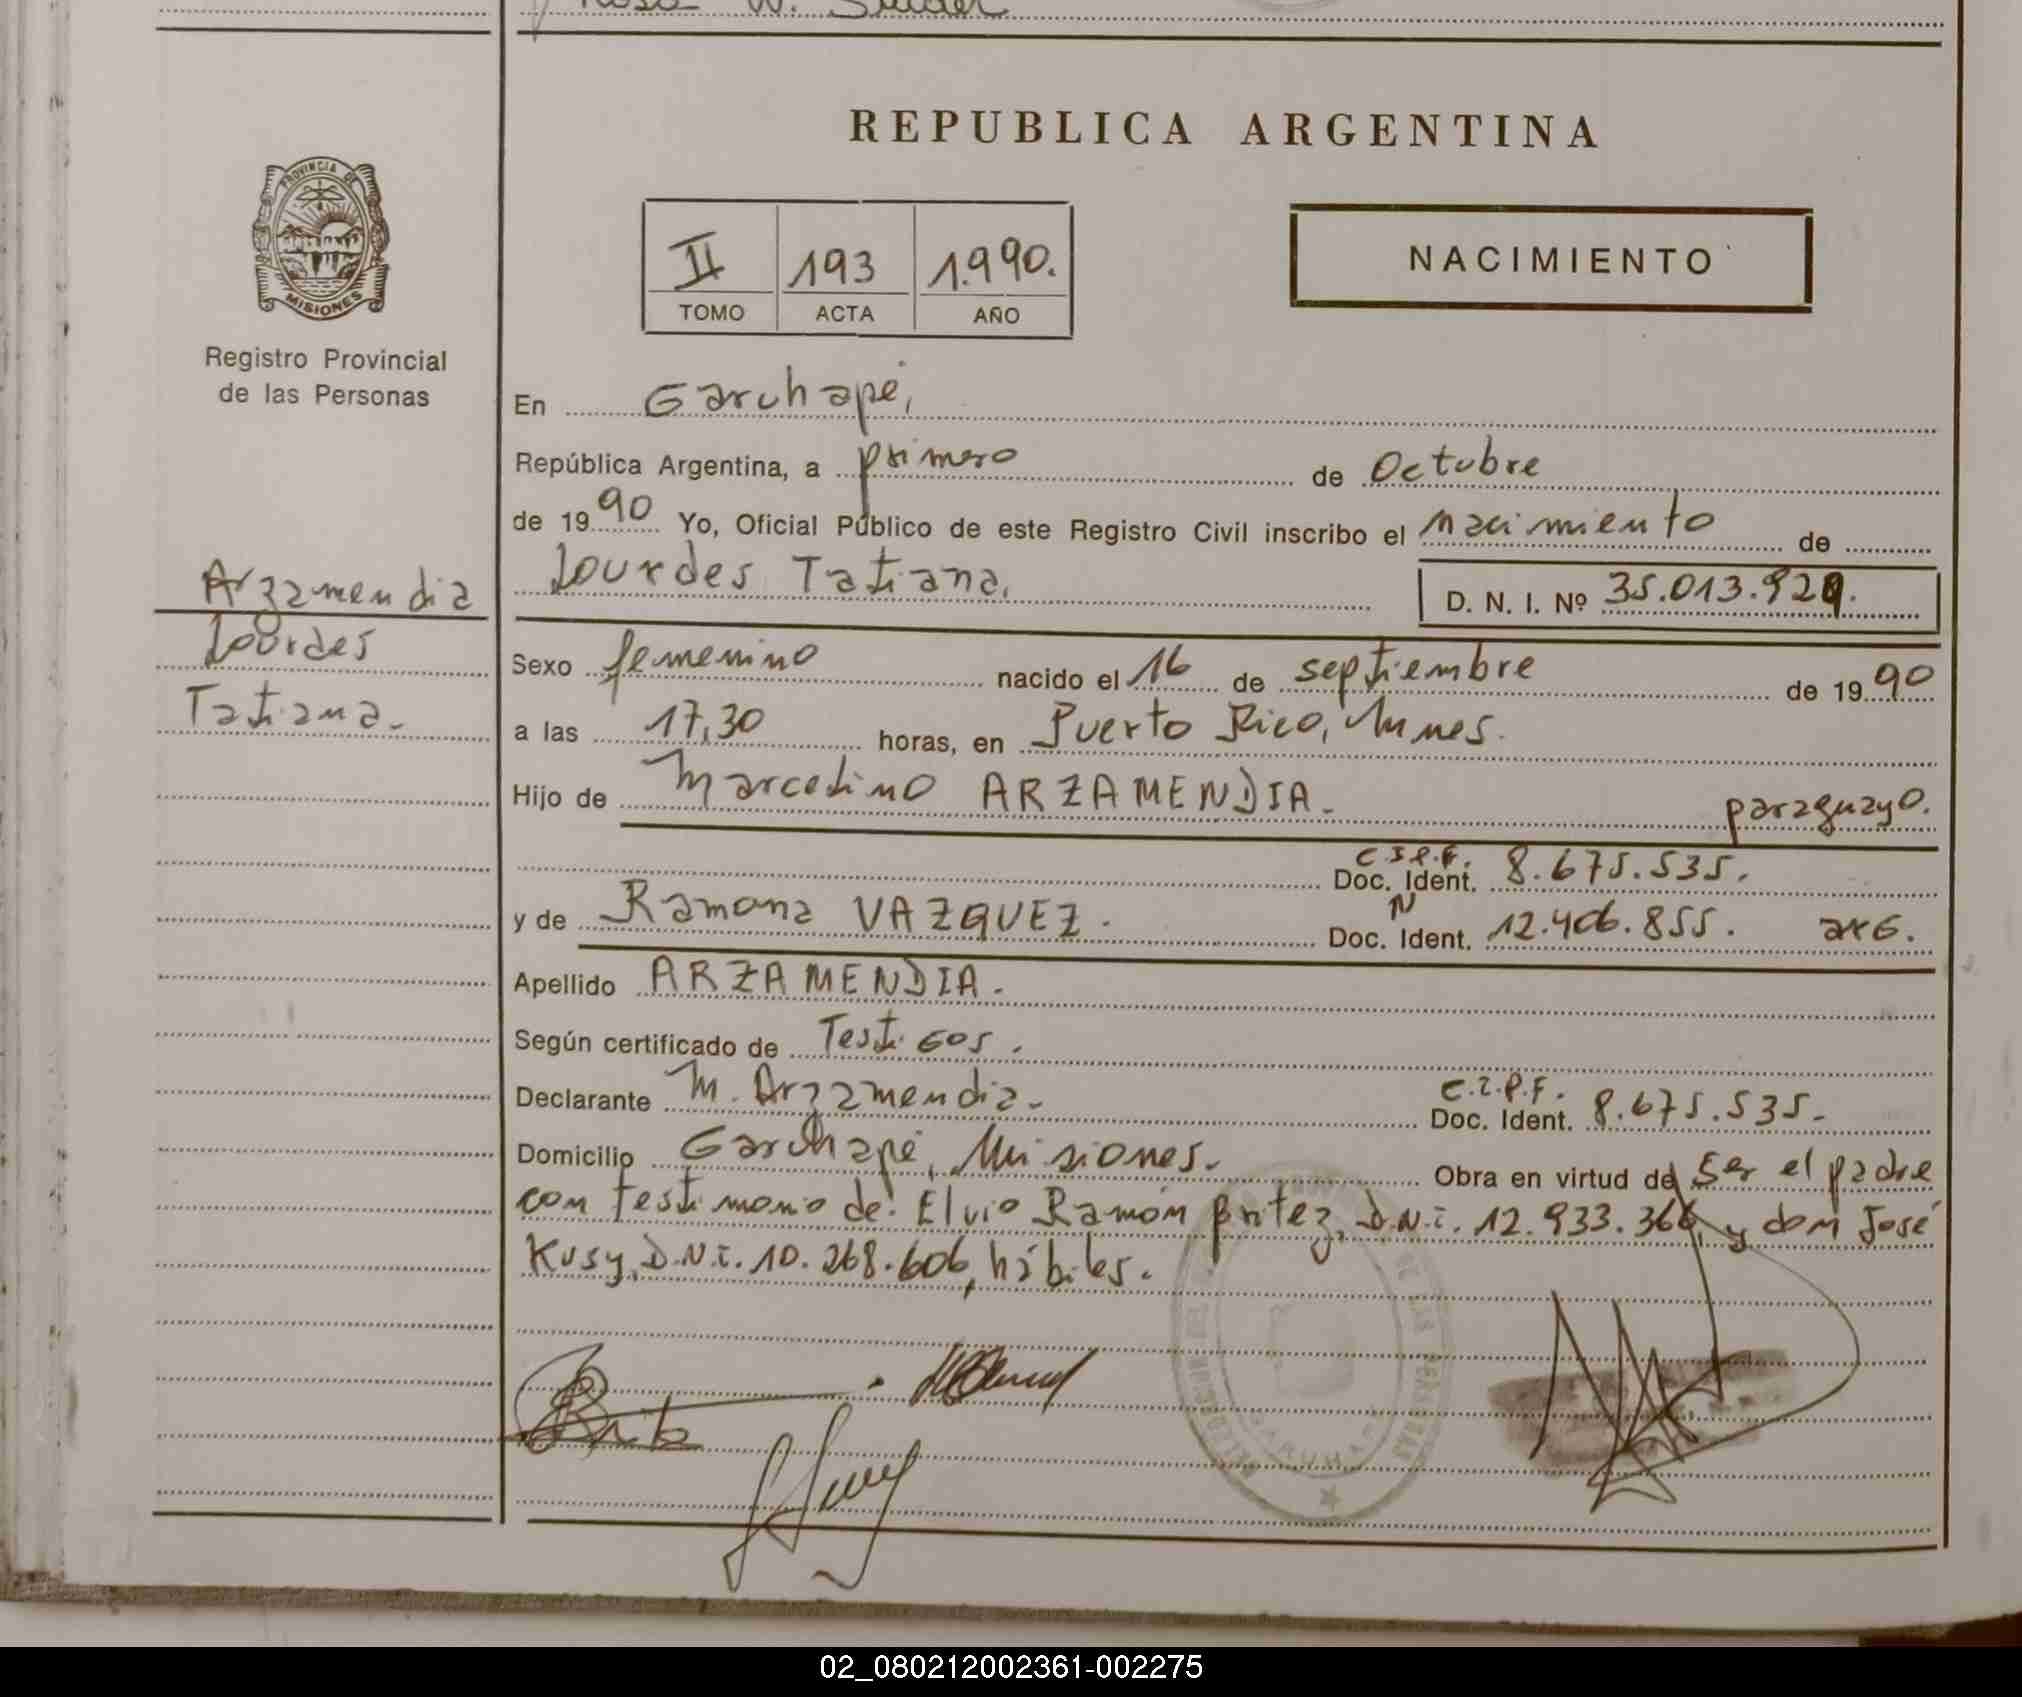 Rosa W.
REPUBLICA ARGENTINA
PROVINCIA DE
MISIONES
II 193 1.990.
TOMO ACTA AÑO
NACIMIENTO
Registro Provincial
de las Personas
Arzamendia
Lourdes
Tatiana.-
En Garuhapé,
República Argentina, a primero de Octubre
de 1990 Yo, Oficial Público de este Registro Civil inscribo el nacimiento de
Lourdes Tatiana. D. N. I. Nº 35.013.929.
Sexo femenino nacido el 16 de septiembre de 1990
a las 17,30 horas, en Puerto Rico, Mnes.
Hijo de Marcelino ARZAMENDIA. paraguayo.
C.I.P.F.
Doc. Ident. 8.675.535.
y de Ramona VAZQUEZ. N Doc. Ident. 12.406.855. arg.
Apellido ARZAMENDIA.
Según certificado de Testigos.
Declarante M. Arzamendia. C.I.P.F. Doc. Ident. 8.675.535.
Domicilio Garuhapé, Misiones. Obra en virtud de Ser el padre
con testimonio de: Elvio Ramón Britez, D.N.I. 12.933.366, y don José
Kusy, D.N.I. 10.268.606, hábiles.
02_080212002361-002275